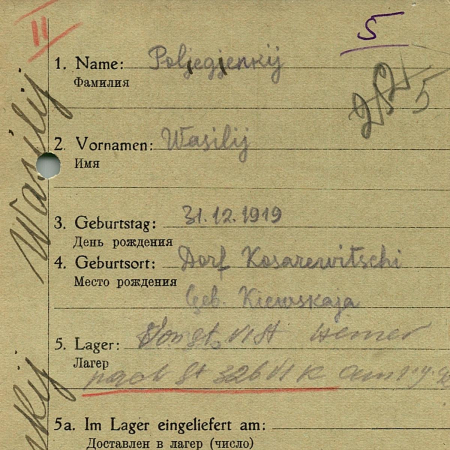 II
5
1. Name: Poljegjenkij
Фамилия
2. Vornamen: Wasilij
Имя
3. Geburtstag: 31.12.1919
День рождения
4. Geburtsort: Dorf Kosarewitschi
Место рождения
Geb. Kiewskaja
5. Lager: VI A Hemer
Лагер
nach St 326 VI K am
5a. Im Lager eingeliefert am:
Доставлен в лагер (число)
Wasilij